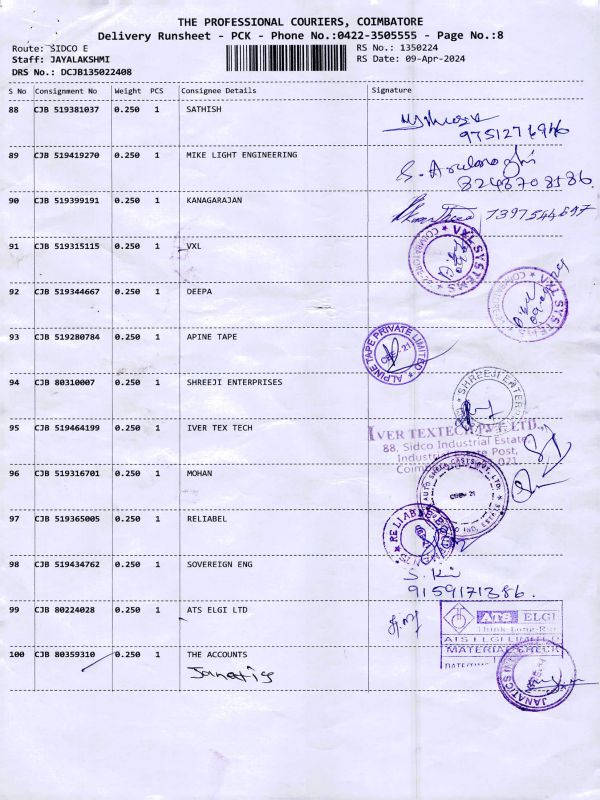 THE PROFESSIONAL COURIERS, COIMBATORE
Delivery Runsheet - PCK - Phone No.:0422-3505555 - Page No.:8
Route: SIDCO E
Staff: JAYALAKSHMI
DRS No.: DCJB135022408
RS No.: 1350224
RS Date: 09-Apr-2024
S No Consignment No Weight PCS Consignee Details Signature
88 CJB 519381037 0.250 1 SATHISH
9751276946
89 CJB 519419270 0.250 1 MIKE LIGHT ENGINEERING
8248708586.
90 CJB 519399191 0.250 1 KANAGARAJAN
91 CJB 519315115 0.250 1 VXL
VXL SYSTEMS
92 CJB 519344667 0.250 1 DEEPA
VXL SYSTEMS
93 CJB 519280784 0.250 1 APINE TAPE
ALPINE TAPE PRIVATE LIMITED
94 CJB 80310007 0.250 1 SHREEJI ENTERPRISES
SHREEJI ENTER
95 CJB 519464199 0.250 1 IVER TEX TECH
IVER TEXTECH PVT. LTD.,
88, Sidco Industrial Estate,
Industrial Estate Post,
96 CJB 519316701 0.250 1 MOHAN
97 CJB 519365005 0.250 1 RELIABEL
98 CJB 519434762 0.250 1 SOVEREIGN ENG
9159171386.
99 CJB 80224028 0.250 1 ATS ELGI LTD
ATS ELGI
ATS ELGI LIMITED
MATERIAL CHECK
100 CJB 80359310 0.250 1 THE ACCOUNTS
Janatis
JANATICS